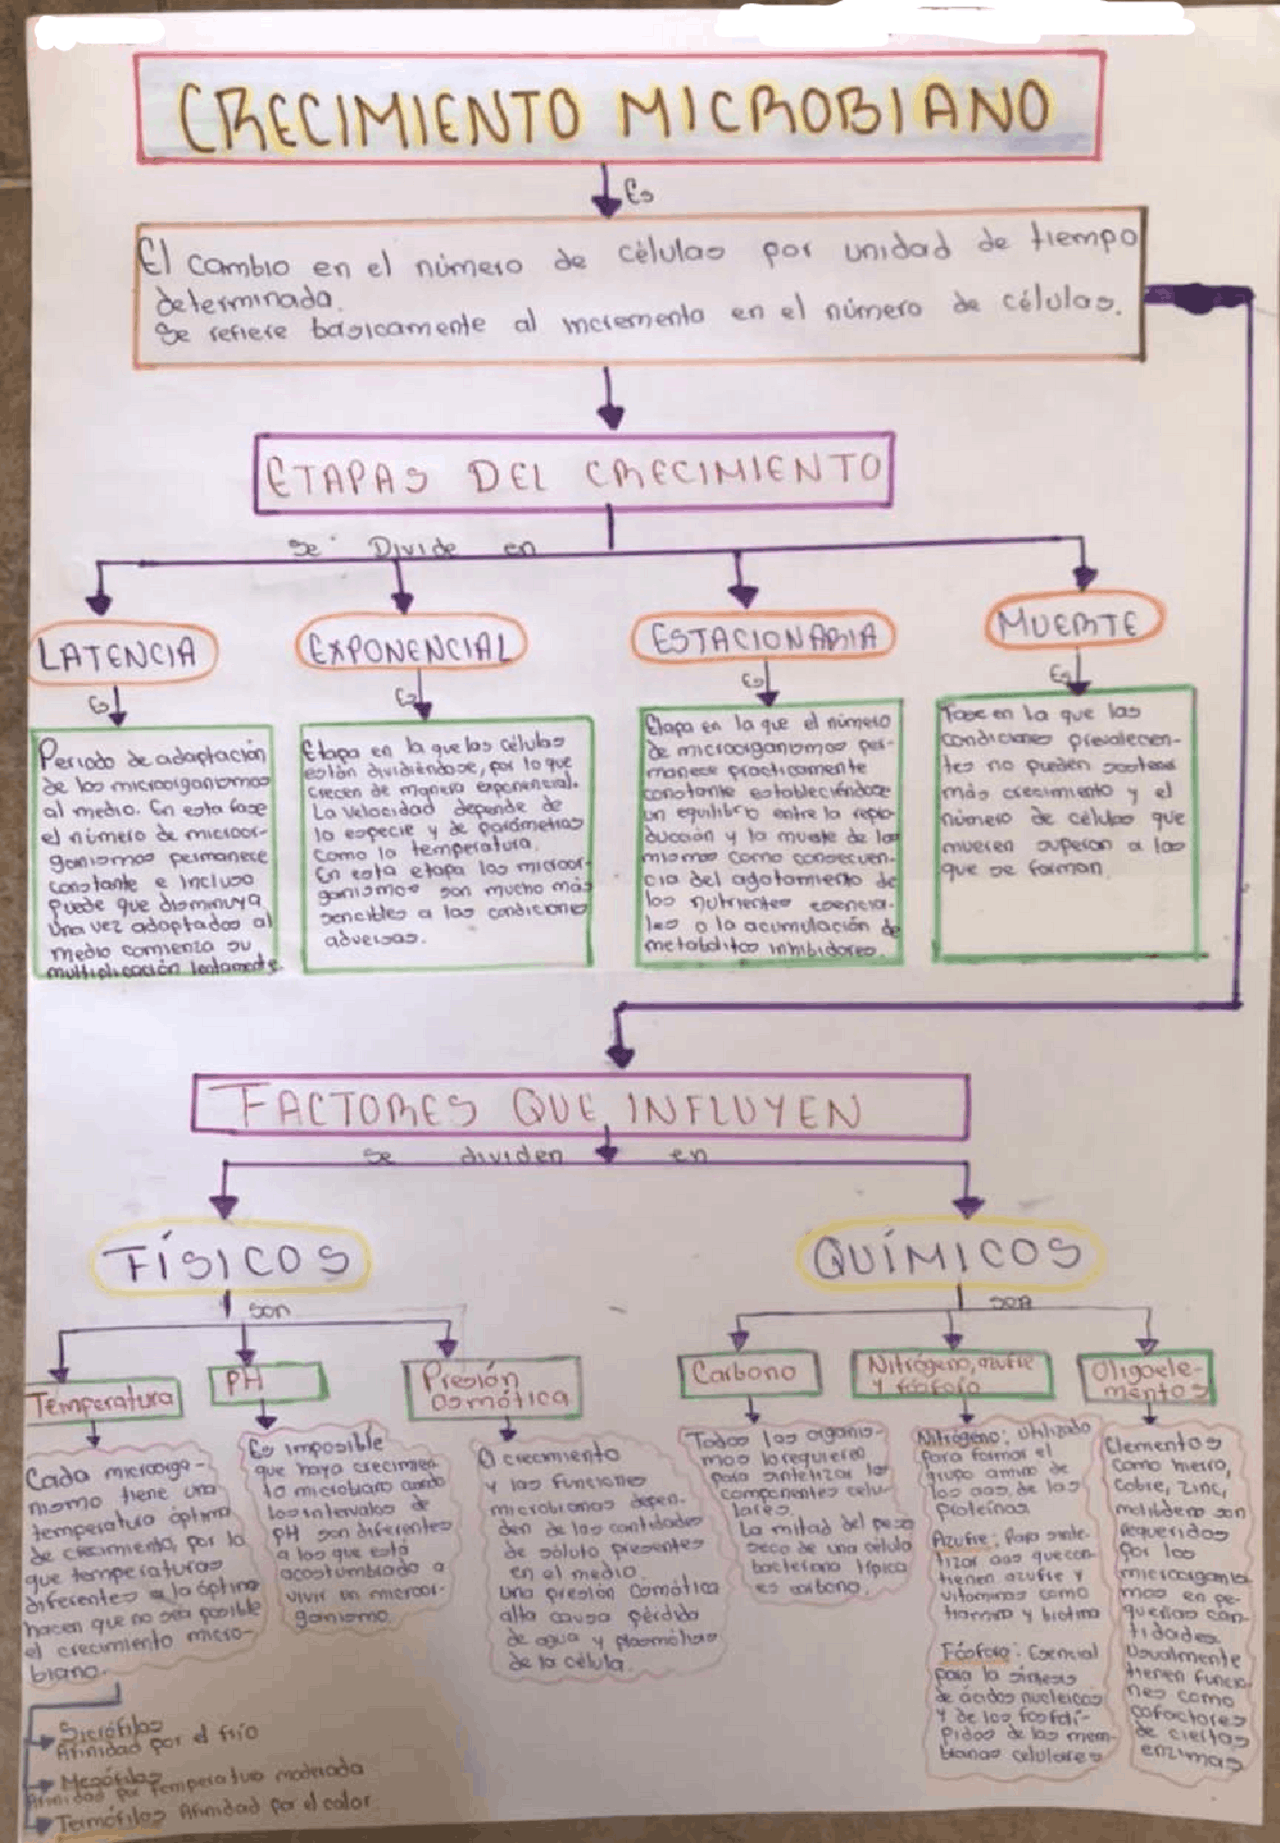 CRECIMIENTO MICROBIANO
Es
El cambio en el número de células por unidad de tiempo
determinada.
Se refiere básicamente al incremento en el número de células.
ETAPAS DEL CRECIMIENTO
Se Divide en
LATENCIA
Es
Periodo de adaptación
de los microorganismos
al medio. En esta fase
el número de microor-
ganismos permanece
constante e incluso
puede que disminuya
una vez adaptados al
medio comienza su
multiplicación lentamente
EXPONENCIAL
Es
Etapa en la que las células
están dividiéndose, por lo que
crecen de manera exponencial.
La velocidad depende de
la especie y de parámetros
como la temperatura.
En esta etapa los microor-
ganismos son mucho más
sencibles a las condiciones
adversas.
ESTACIONARIA
Es
Etapa en la que el número
de microorganismos per-
manece practicamente
constante estableciéndose
un equilibro entre la repro
ducción y la muerte de los
mismos como consecuen-
cia del agotamiento de
los nutrientes esencia-
les o la acumulación de
metabolitos inhibidores.
MUERTE
Es
Fase en la que las
condiciones prevalecen-
tes no pueden sostener
más crecimiento y el
número de células que
mueren superan a las
que se forman
FACTORES QUE INFLUYEN
se dividen en
FÍSICOS
son
Temperatura
Cada microorga-
nismo tiene una
temperatura óptima
de crecimiento, por lo
que temperaturas
diferentes a la óptima
hacen que no sea posible
el crecimiento micro-
biano.
Sicrófilos
Afinidad por el frío
Mesófilos
Afinidad por temperatura moderada
Termófilos Afinidad por el calor
PH
Es imposible
que haya crecimien
to microbiano cuando
los intervalos de
PH son diferentes
a los que está
acostumbrado a
vivir un microor-
ganismo.
Presión
Osmótica
El crecimiento
y las funciones
microbianas depen-
den de las cantidades
de sóluto presentes
en el medio.
una presión osmótica
alta causa pérdida
de agua y plasmólisis
de la célula.
QUÍMICOS
son
Carbono
Todos los organis-
mos lo requieren
para sintetizar los
componentes celu-
lares.
La mitad del peso
seco de una célula
bacteriana típica
es carbono.
Nitrógeno, azufre
y fósforo
Nitrógeno: Utilizado
para formar el
grupo amino de
los aas. de las
proteínas.
Azufre: Para sinte-
tizar aas que con-
tienen azufre y
vitaminas como
tiamina y biotina
Fósforo: Esencial
para la síntesis
de ácidos nucleicos
y de los fosfolí-
pidos de las mem-
branas celulares
Oligoele-
mentos
Elementos
como hierro,
cobre, zinc,
molibdeno son
requeridos
por los
microorganis-
mos en pe-
queñas can-
tidades.
Usualmente
tienen funcio
nes como
cofactores
de ciertas
enzimas